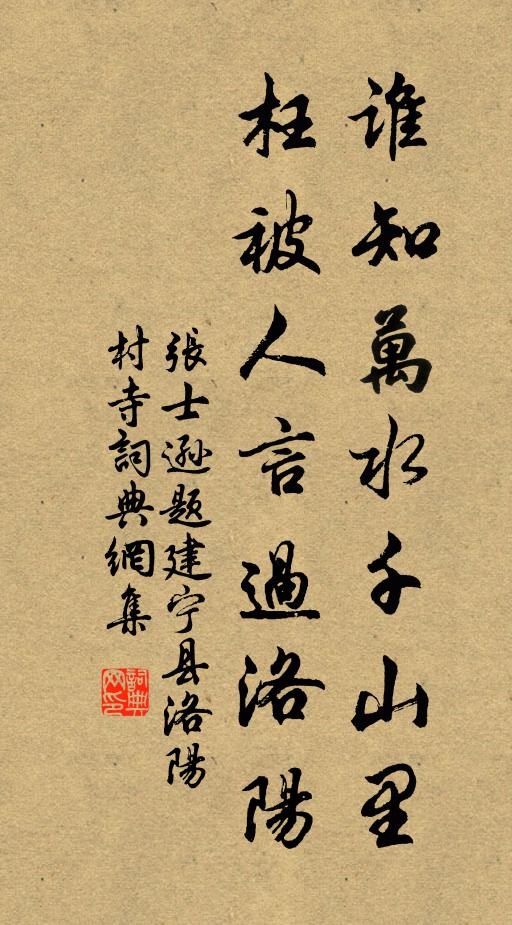 谁知萬水千山里
枉被人言過洛陽
張士遜题建宁县洛陽
村寺詞典網集
詞典
网印